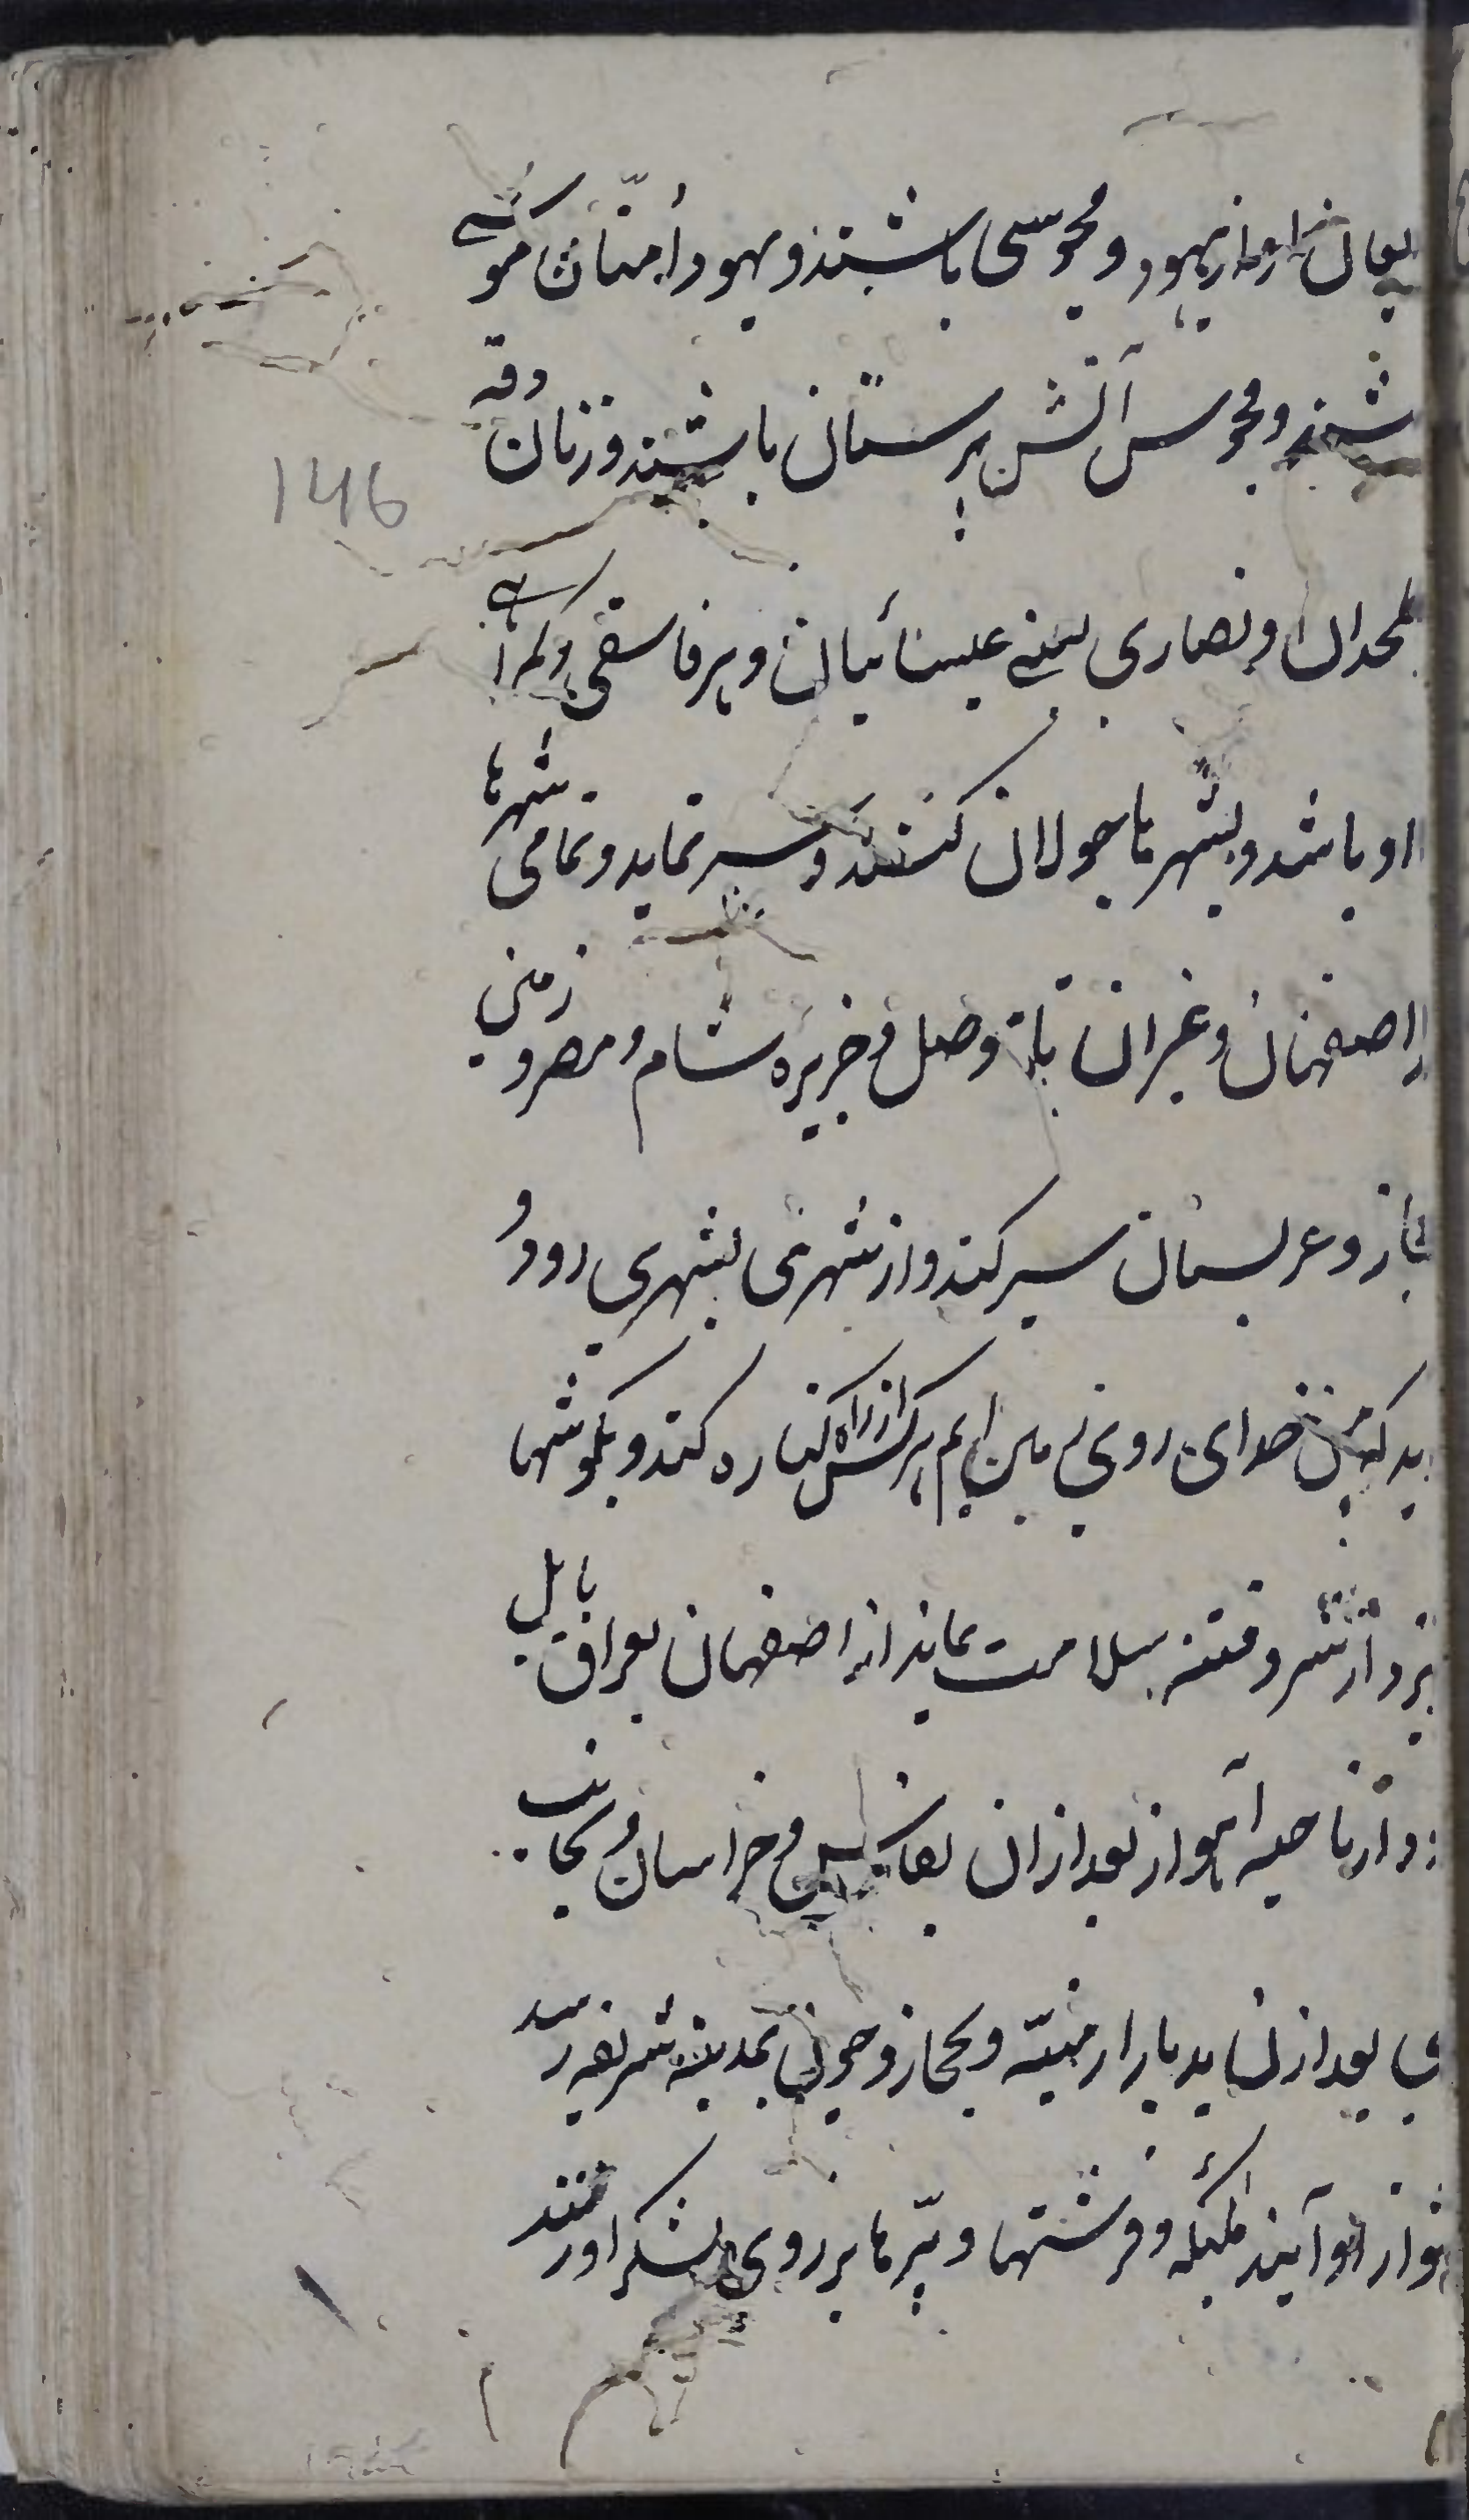 او از یهود و مجوسی باشند و یهود اُمتان موسے
شند و مجوس آتش پرستان باشند و زنان وقه
ملحدان و نصاری یعنے عیسائیان و هر فاسقی و گمراهے
او باشد و بشهرها جولان کنند و سیر نماید و تمامی شهرها
اصفهان و غیران تا موصل و جزیره شام و مصر و زمنی
جاز و عربستان سیر کند و از شهری بشهری رود و
ید که من خدای روی زمین ایم هرکس از راه کناره کند و بگوشها
یزد از شر و فتنه سلامت بماند از اصفهان بعراق بابل
ود از ناحیه آهواز بعد ازان بفارس و خراسان و بجانب
بعد ازان بدیار ارمنیّه و بحجاز و چون بمدینه شریفه رسد
از او آیند ملئکه و فرشتها و پرّها بر روی لشکر او زنند
146